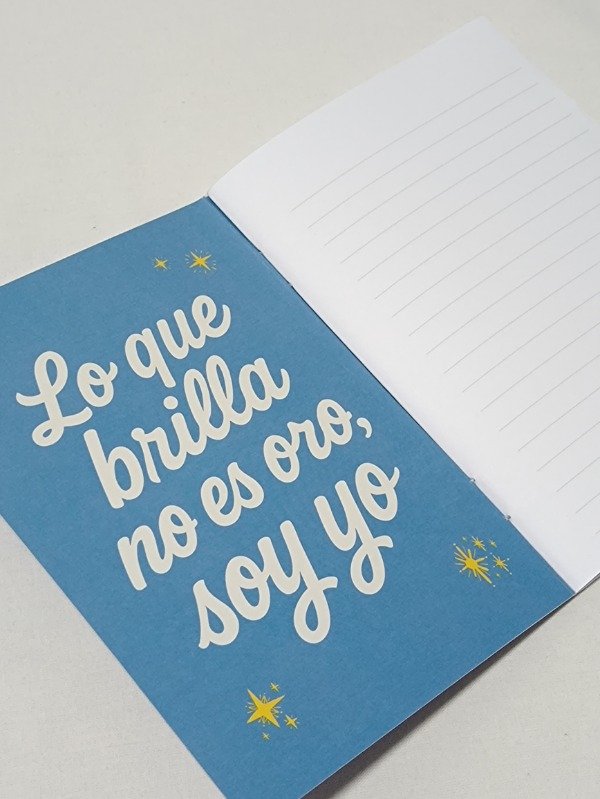 Lo que
brilla
no es oro,
soy yo